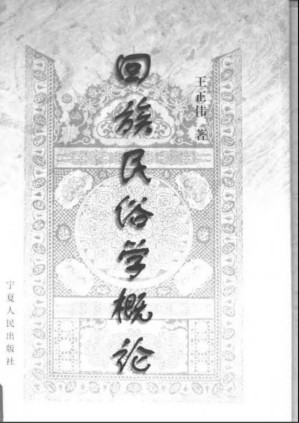 王正伟 著
回族民俗学概论
宁夏人民出版社